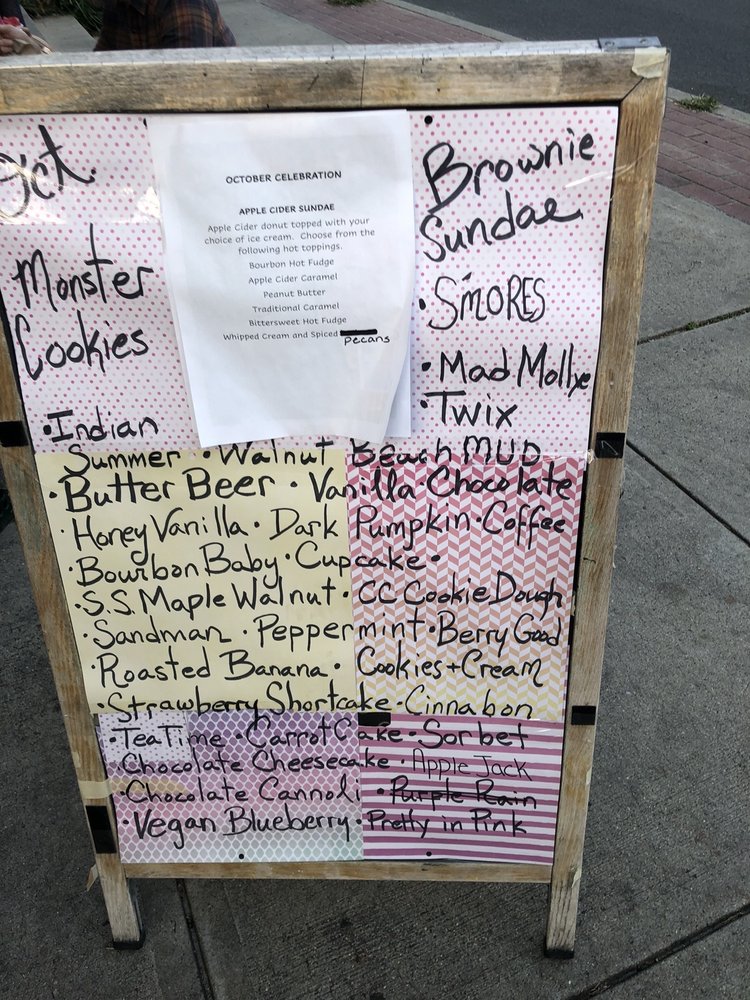 Oct.
Monster
Cookies
OCTOBER CELEBRATION
APPLE CIDER SUNDAE
Apple Cider donut topped with your
choice of ice cream. Choose from the
following hot toppings.
Bourbon Hot Fudge
Apple Cider Caramel
Peanut Butter
Traditional Caramel
Bittersweet Hot Fudge
Whipped Cream and Spiced
pecans
Brownie
Sundae
• S'MORES
• Mad Mollye
• Twix
• Indian
Summer • Walnut Beach MUD
• Butter Beer • Vanilla • Chocolate
• Honey Vanilla • Dark Pumpkin • Coffee
• Bourbon Baby • Cupcake •
• S.S. Maple Walnut • CC Cookie Dough
• Sandman • Peppermint • Berry Good
• Roasted Banana • Cookies + Cream
• Strawberry Shortcake • Cinnabon
• Tea Time • Carrot Cake • Sorbet
• Chocolate Cheesecake • Apple Jack
• Chocolate Cannoli • Purple Rain
• Vegan Blueberry • Pretty in Pink